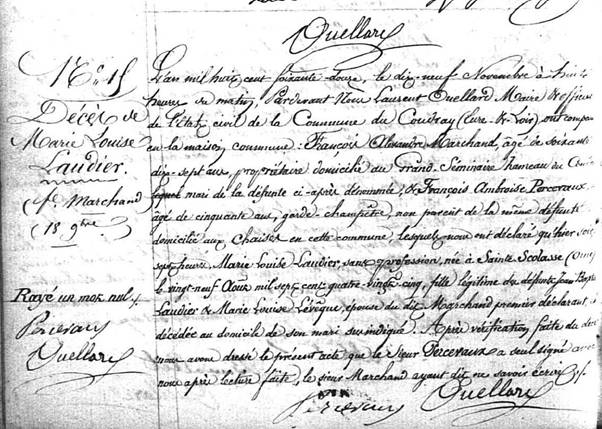 Ouellard
N.º 15
Décès de
Marie Louise
Laudier.
fe. Marchand
18 9bre
Rayé un mot nul
Percevaux
Ouellard
L'an mil huit cent soixante-douze, le dix-neuf Novembre à huit
heures du matin, Pardevant Nous Laurent Ouellard Maire & officier
de l'état civil de la Commune du Coudray (Eure & Loir), ont comparu
en la maison commune: François Alexandre Marchand, âgé de soixante
dix-sept ans, propriétaire domicilié au Grand-Séminaire hameau du
mari de la défunte ci-après dénommée, & François Ambroise Percevaux
âgé de cinquante ans, garde-champêtre, non parent de la même défunte
domicilié aux Chaises en cette commune, lesquels nous ont déclaré qu'hier soir
sept heures, Marie Louise Laudier, sans profession, née à Sainte Scolasse (Orne)
le vingt-neuf Août mil sept cent quatre-vingt-cinq, fille légitime des défunts Jean Bapte
Laudier & Marie Louise Levêque, épouse du dit Marchand premier déclarant, est
décédée au domicile de son mari susindiqué. Après vérification faite du décès
nous avons dressé le présent acte que le sieur Percevaux a seul signé avec
nous après lecture faite, le sieur Marchand ayant dit ne savoir écrire
Percevaux
Ouellard